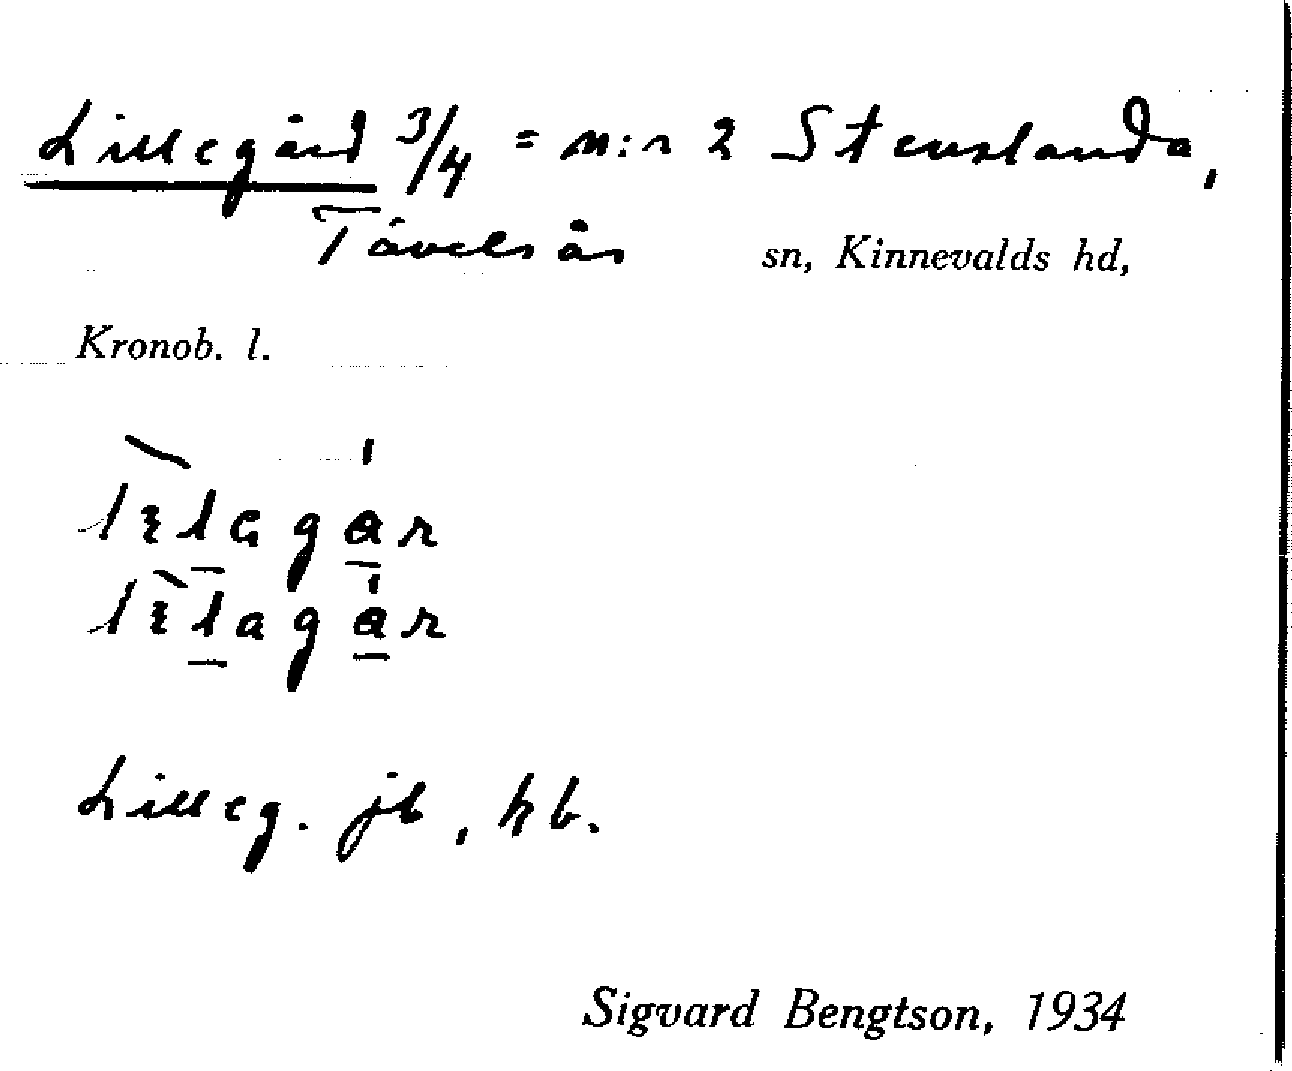 Lillegård 3/4 = n:r 2 Stenslanda,
Tävelsås sn, Kinnevalds hd,
Kronob. l.
Lilleg. jb, kb.
Sigvard Bengtson, 1934